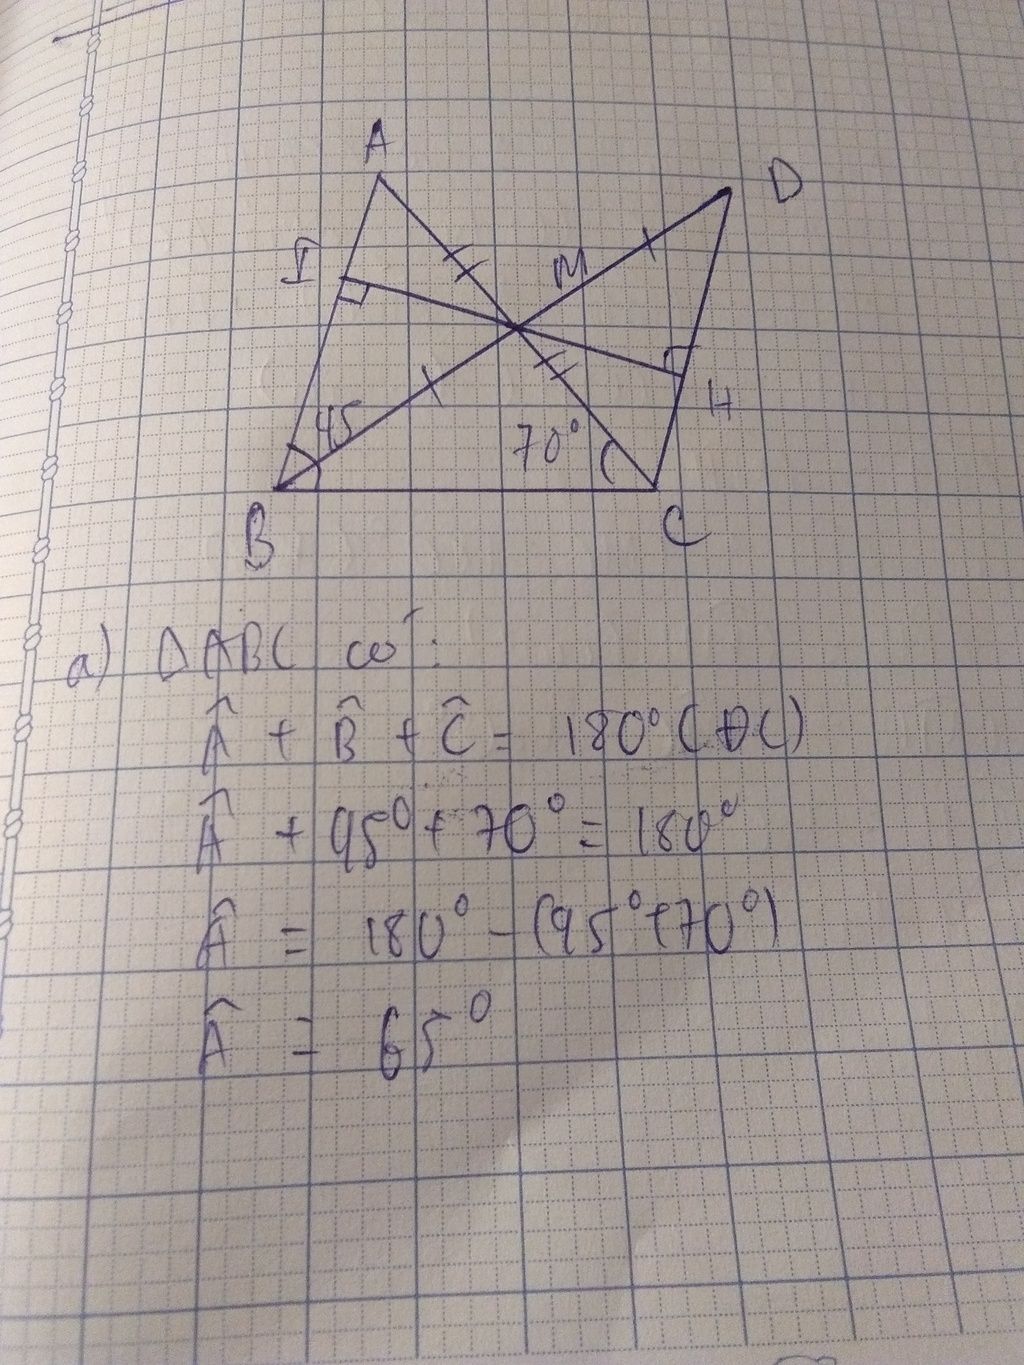 A
D
I
M
45
70°
H
B
C
a) ΔABC có:
Â + B̂ + Ĉ = 180° (ĐL)
Â + 45° + 70° = 180°
Â = 180° - (45° + 70°)
Â = 65°